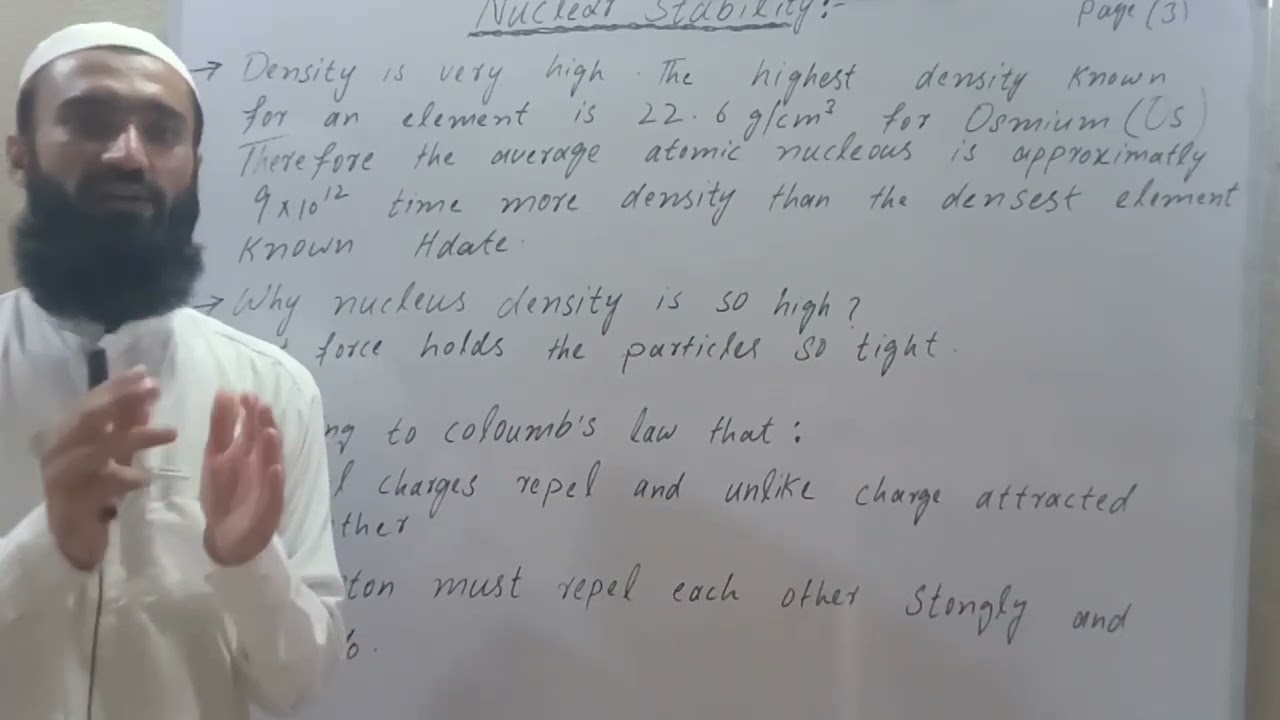 Nuclear Stability:-
Page (3)
→ Density is very high. The highest density known
for an element is 22.6 g/cm³ for Osmium (Os)
Therefore the average atomic nucleous is approximatly
9x10¹² time more density than the densest element
known Hdate.
→ Why nucleus density is so high?
force holds the particles so tight.
ng to coloumb's law that:
l charges repel and unlike charge attracted
ther
ton must repel each other Stongly and
%.